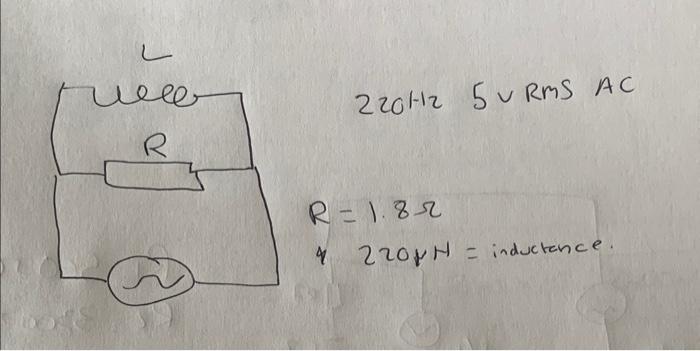 L
220Hz 5v RMS AC
R
R = 1.8Ω
& 220μH = inductance.